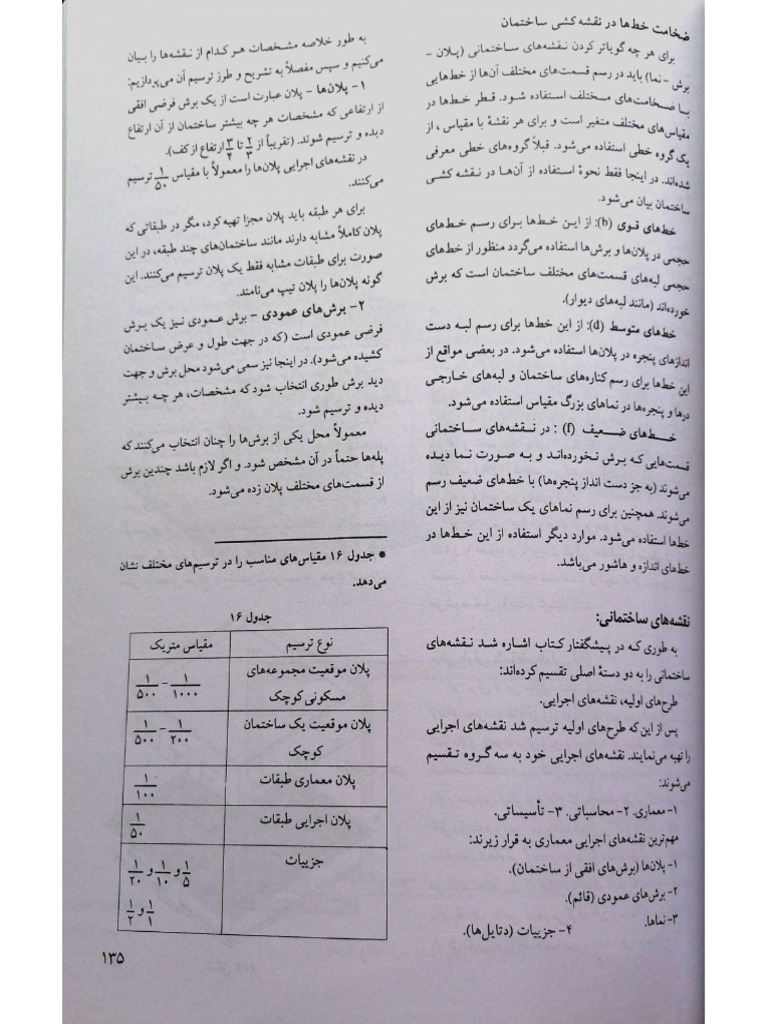 ضخامت خط‌ها در نقشه کشی ساختمان
برای هر چه گویاتر کردن نقشه‌های ساختمانی (پلان -
برش - نما) باید در رسم قسمت‌های مختلف آن‌ها از خط‌هایی
با ضخامت‌های مختلف استفاده شود. قطر خط‌ها در
مقیاس‌های مختلف متغیر است و برای هر نقشهٔ با مقیاس، از
یک گروه خطی استفاده می‌شود. قبلاً گروه‌های خطی معرفی
شده‌اند. در اینجا فقط نحوهٔ استفاده از آن‌ها در نقشه کشی
ساختمان بیان می‌شود.
خط‌های قوی (b): از این خط‌ها برای رسم خط‌های
حجمی در پلان‌ها و برش‌ها استفاده می‌گردد منظور از خط‌های
حجمی لبه‌های قسمت‌های مختلف ساختمان است که برش
خورده‌اند (مانند لبه‌های دیوار).
خط‌های متوسط (d): از این خط‌ها برای رسم لبه دست
اندازهای پنجره در پلان‌ها استفاده می‌شود. در بعضی مواقع از
این خط‌ها برای رسم کناره‌های ساختمان و لبه‌های خارجی
درها و پنجره‌ها در نماهای بزرگ مقیاس استفاده می‌شود.
خط‌های ضعیف (f): در نقشه‌های ساختمانی
قسمت‌هایی که برش نخورده‌اند و به صورت نما دیده
می‌شوند (به جز دست انداز پنجره‌ها) با خط‌های ضعیف رسم
می‌شوند. همچنین برای رسم نماهای یک ساختمان نیز از این
خط‌ها استفاده می‌شود. موارد دیگر استفاده از این خط‌ها در
خط‌های اندازه و هاشور می‌باشد.
نقشه‌های ساختمانی:
به طوری که در پیشگفتار کتاب اشاره شد نقشه‌های
ساختمانی را به دو دستهٔ اصلی تقسیم کرده‌اند:
طرح‌های اولیه، نقشه‌های اجرایی.
پس از این که طرح‌های اولیه ترسیم شد نقشه‌های اجرایی
را تهیه می‌نمایند. نقشه‌های اجرایی خود به سه گروه تقسیم
می‌شوند:
۱- معماری. ۲- محاسباتی. ۳- تأسیساتی.
مهم‌ترین نقشه‌های اجرایی معماری به قرار زیرند:
۱- پلان‌ها (برش‌های افقی از ساختمان).
۲- برش‌های عمودی (قائم).
۳- نماها. ۴- جزییات (دتایل‌ها).
به طور خلاصه مشخصات هر کدام از نقشه‌ها را بیان
می‌کنیم و سپس مفصلاً به تشریح و طرز ترسیم آن می‌پردازیم:
۱- پلان‌ها - پلان عبارت است از یک برش فرضی افقی
از ارتفاعی که مشخصات هر چه بیشتر ساختمان از آن ارتفاع
دیده و ترسیم شوند. (تقریباً از ۲/۳ تا ۳/۴ ارتفاع از کف).
در نقشه‌های اجرایی پلان‌ها را معمولاً با مقیاس ۱/۵۰ ترسیم
می‌کنند.
برای هر طبقه باید پلان مجزا تهیه کرد، مگر در طبقاتی که
پلان کاملاً مشابه دارند مانند ساختمان‌های چند طبقه، در این
صورت برای طبقات مشابه فقط یک پلان ترسیم می‌کنند. این
گونه پلان‌ها را پلان تیپ می‌نامند.
۲- برش‌های عمودی - برش عمودی نیز یک برش
فرضی عمودی است (که در جهت طول و عرض ساختمان
کشیده می‌شود). در اینجا نیز سعی می‌شود محل برش و جهت
دید برش طوری انتخاب شود که مشخصات، هر چه بیشتر
دیده و ترسیم شود.
معمولاً محل یکی از برش‌ها را چنان انتخاب می‌کنند که
پله‌ها حتماً در آن مشخص شود. و اگر لازم باشد چندین برش
از قسمت‌های مختلف پلان زده می‌شود.
● جدول ۱۶ مقیاس‌های مناسب را در ترسیم‌های مختلف نشان
می‌دهد.
جدول ۱۶
نوع ترسیم مقیاس متریک
پلان موقعیت مجموعه‌های ۱/۱۰۰۰ - ۱/۵۰۰
مسکونی کوچک
پلان موقعیت یک ساختمان ۱/۲۰۰ - ۱/۵۰۰
کوچک
پلان معماری طبقات ۱/۱۰۰
پلان اجرایی طبقات ۱/۵۰
جزییات ۱/۵ و ۱/۱۰ و ۱/۲۰
۱/۱ و ۱/۲
۱۳۵